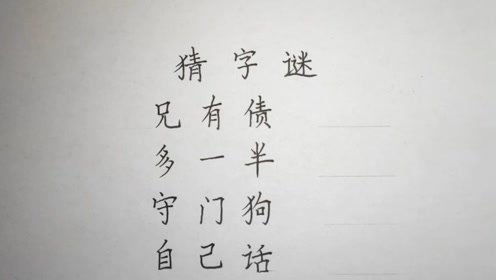 猜字谜
兄有债
多一半
守门狗
自己话